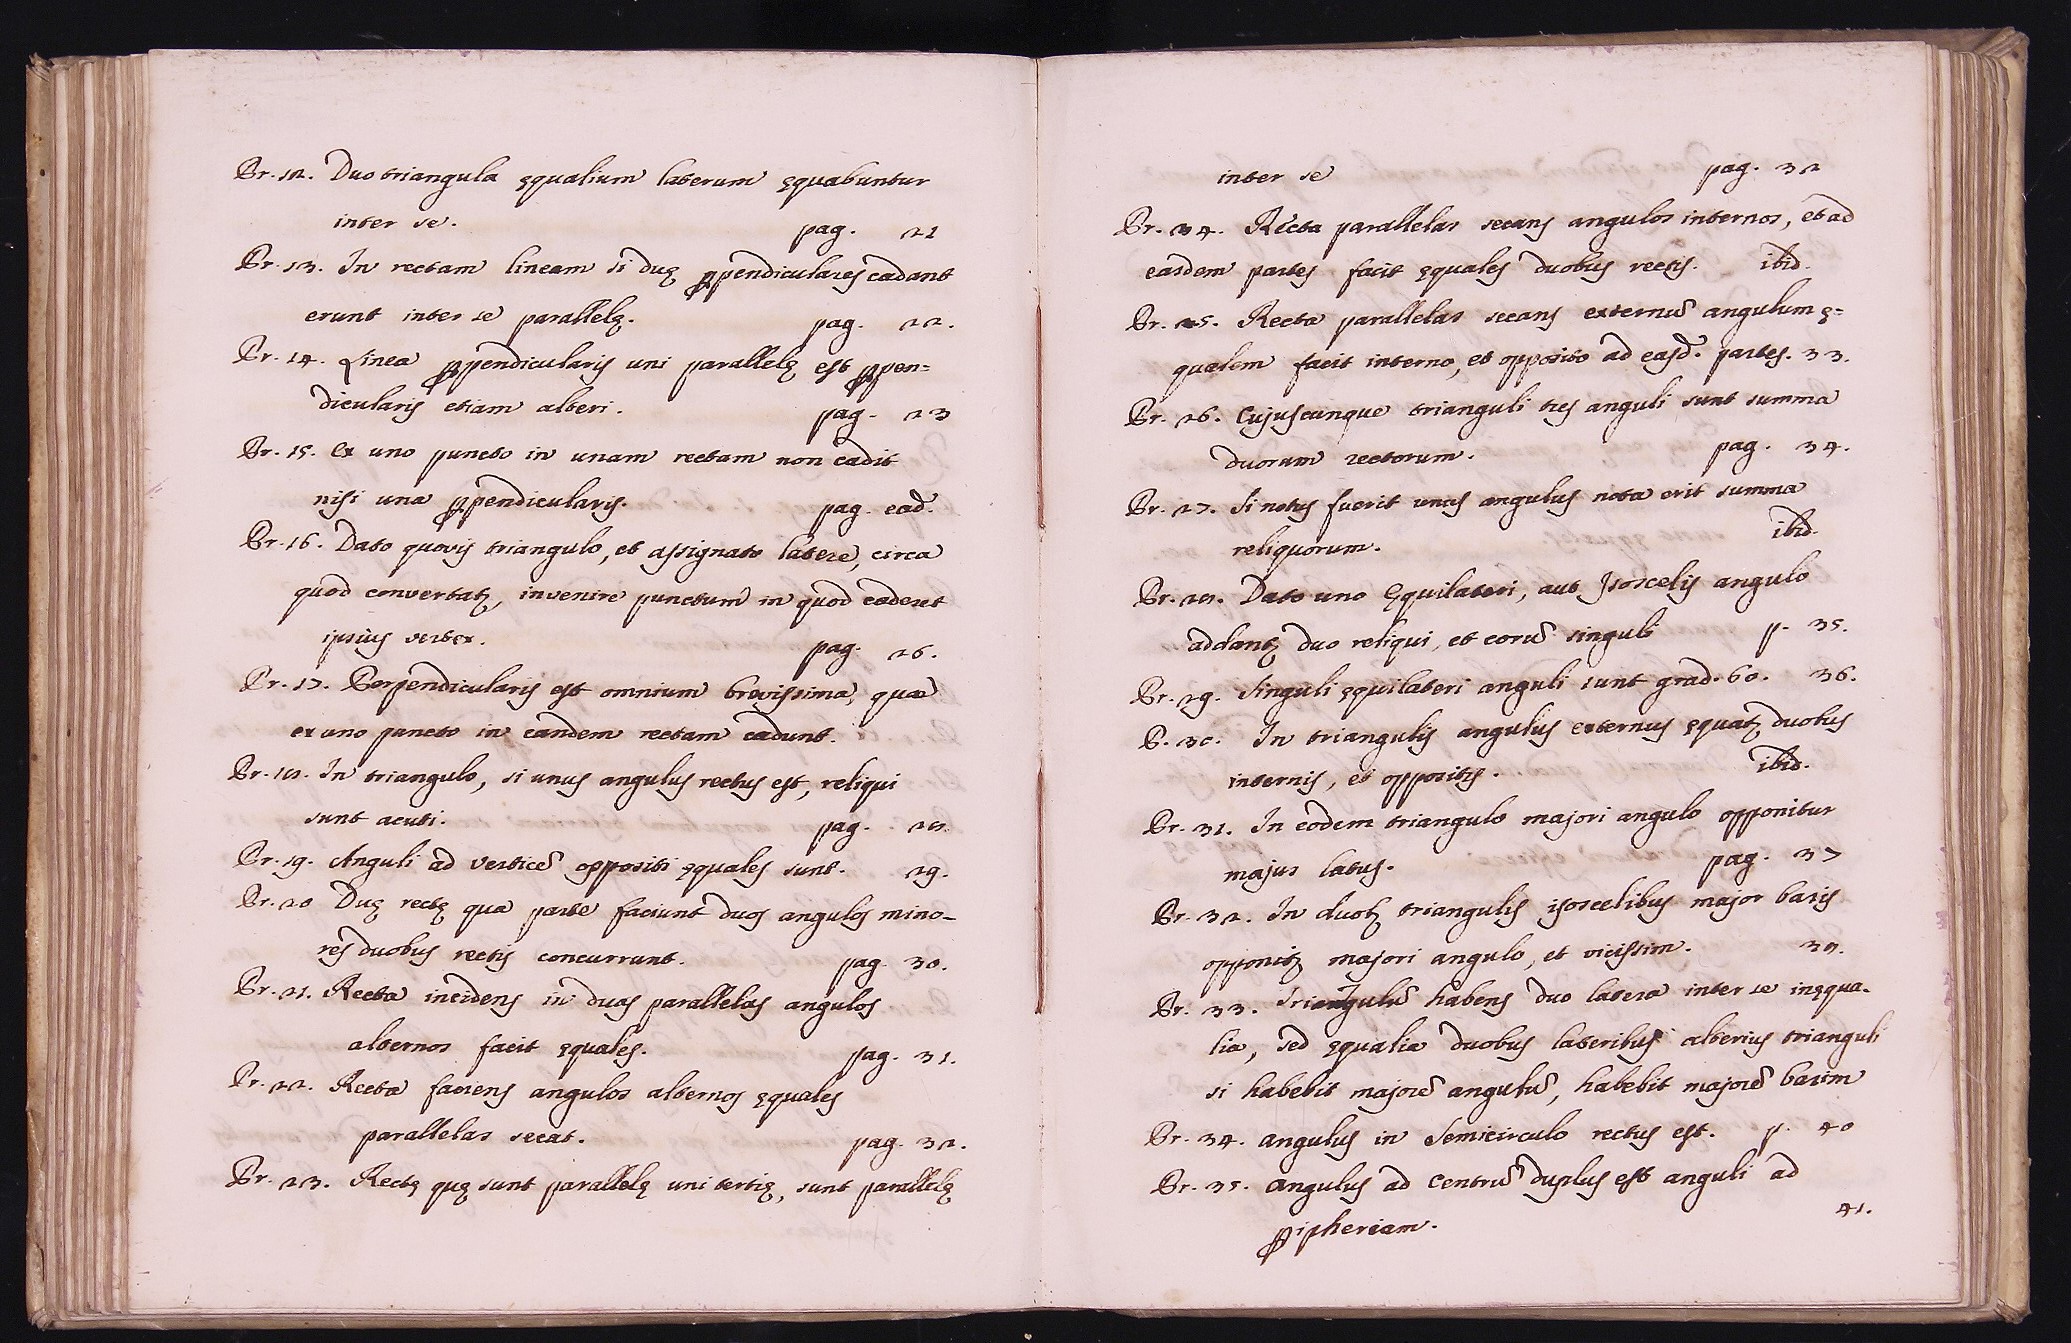 Pr. 12. Duo triangula ęqualium laterum ęquabuntur
inter se. pag. 21
Pr. 13. In rectam lineam si duę ꝑpendiculares cadant
erunt inter se parallelę. pag. 22.
Pr. 14. Linea ꝑpendicularis uni parallelę est ꝑpen=
dicularis etiam alteri. pag. 23
Pr. 15. Ex uno puncto in unam rectam non cadit
nisi una ꝑpendicularis. pag. ead.
Pr. 16. Dato quovis triangulo, et assignato latere, circa
quod convertatꝫ, invenire punctum in quod caderet
ipsius vertex. pag. 26.
Pr. 17. Perpendicularis est omnium brevissima, quæ
ex uno puncto in eandem rectam cadunt.
Pr. 18. In triangulo, si unus angulus rectus est, reliqui
sunt acuti. pag. 28.
Pr. 19. Anguli ad verticē oppositi ęquales sunt. 29.
Pr. 20 Duę rectę qua parte faciunt duos angulos mino-
res duobus rectis concurrunt. pag. 30.
Pr. 21. Recta incidens in duas parallelas angulos
alternos facit ęquales. pag. 31.
Pr. 22. Recta faciens angulos alternos ęquales
parallelas secat. pag. 32.
Pr. 23. Rectę quę sunt parallelę uni tertię, sunt parallelę
inter se pag. 32
Pr. 24. Recta parallelas secans angulos internos, et ad
easdem partes facit ęquales duobus rectis. ibid.
Pr. 25. Recta parallelas secans externū angulum ę=
qualem facit interno, et opposito ad easd. partes. 33.
Pr. 26. Cujuscunque trianguli tres anguli sunt summa
duorum rectorum. pag. 34.
Pr. 27. Si notus fuerit unus angulus nota erit summa
reliquorum. ibid.
Pr. 28. Dato uno ęquilateri, aut Isoscelis angulo
addantꝫ duo reliqui, et eorū singuli p. 35.
Pr. 29. Singuli ęquilateri anguli sunt grad. 60. 36.
P. 30. In triangulis angulus externus ęquatꝫ duobus
internis, et oppositis. ibid.
Pr. 31. In eodem triangulo majori angulo opponitur
majus latus. pag. 37
Pr. 32. In duobꝫ triangulis isoscelibus major basis
opponitꝫ majori angulo, et vicissim. 38.
Pr. 33. Triangulū habens duo latera inter se inęqua-
lia, sed ęqualia duobus lateribus alterius trianguli
si habebit majorē angulū, habebit majorē basim
Pr. 34. angulus in Semicirculo rectus est. p. 40
Pr. 35. angulus ad centrū duplus est anguli ad
ꝑipheriam. 41.